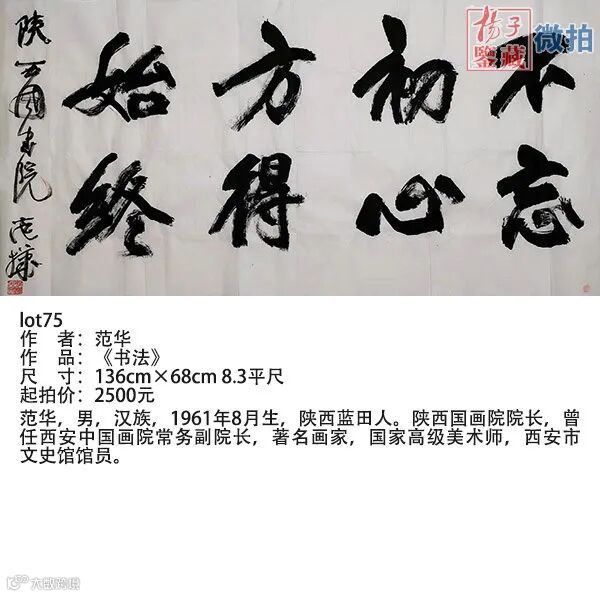 揚子
鑒藏
微拍
不忘
初心
方得
始终
陕西国画院 范华
lot75
作 者：范华
作 品：《书法》
尺 寸：136cm×68cm 8.3平尺
起拍价：2500元
范华，男，汉族，1961年8月生，陕西蓝田人。陕西国画院院长，曾
任西安中国画院常务副院长，著名画家，国家高级美术师，西安市
文史馆馆员。
大数跨境